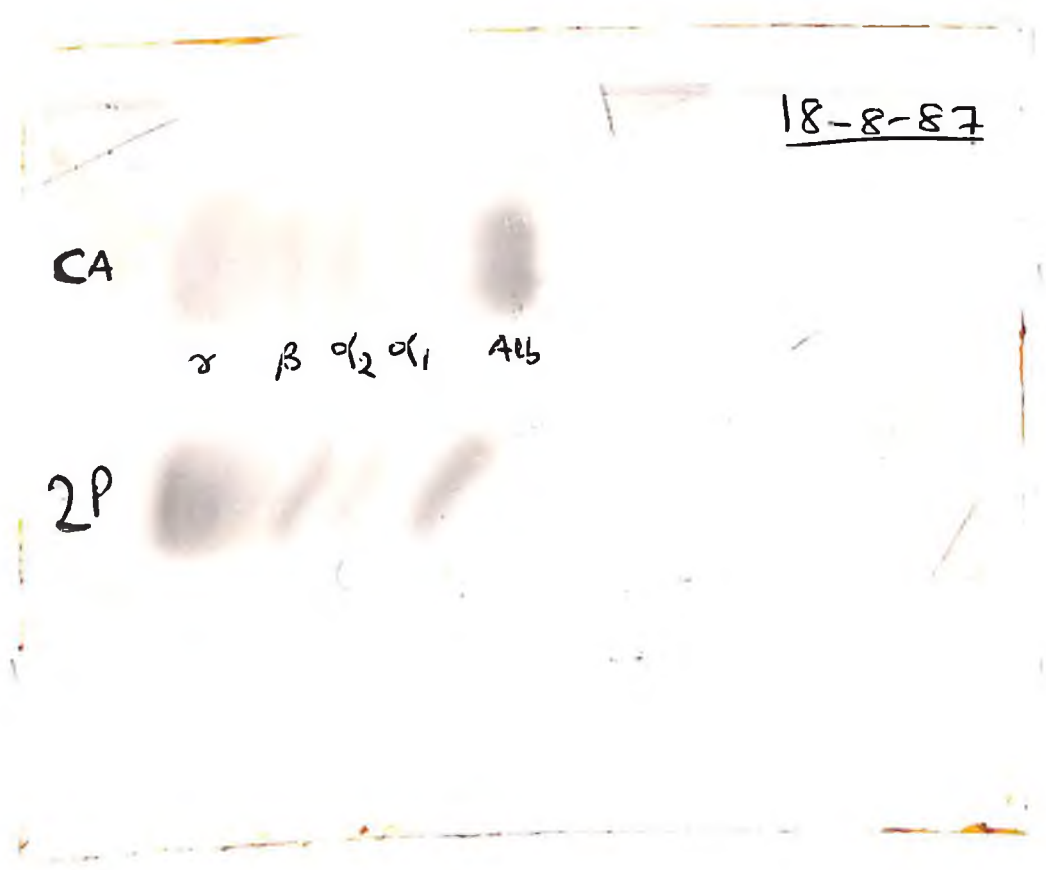 18-8-87
CA
γ β α2 α1 Alb
2P